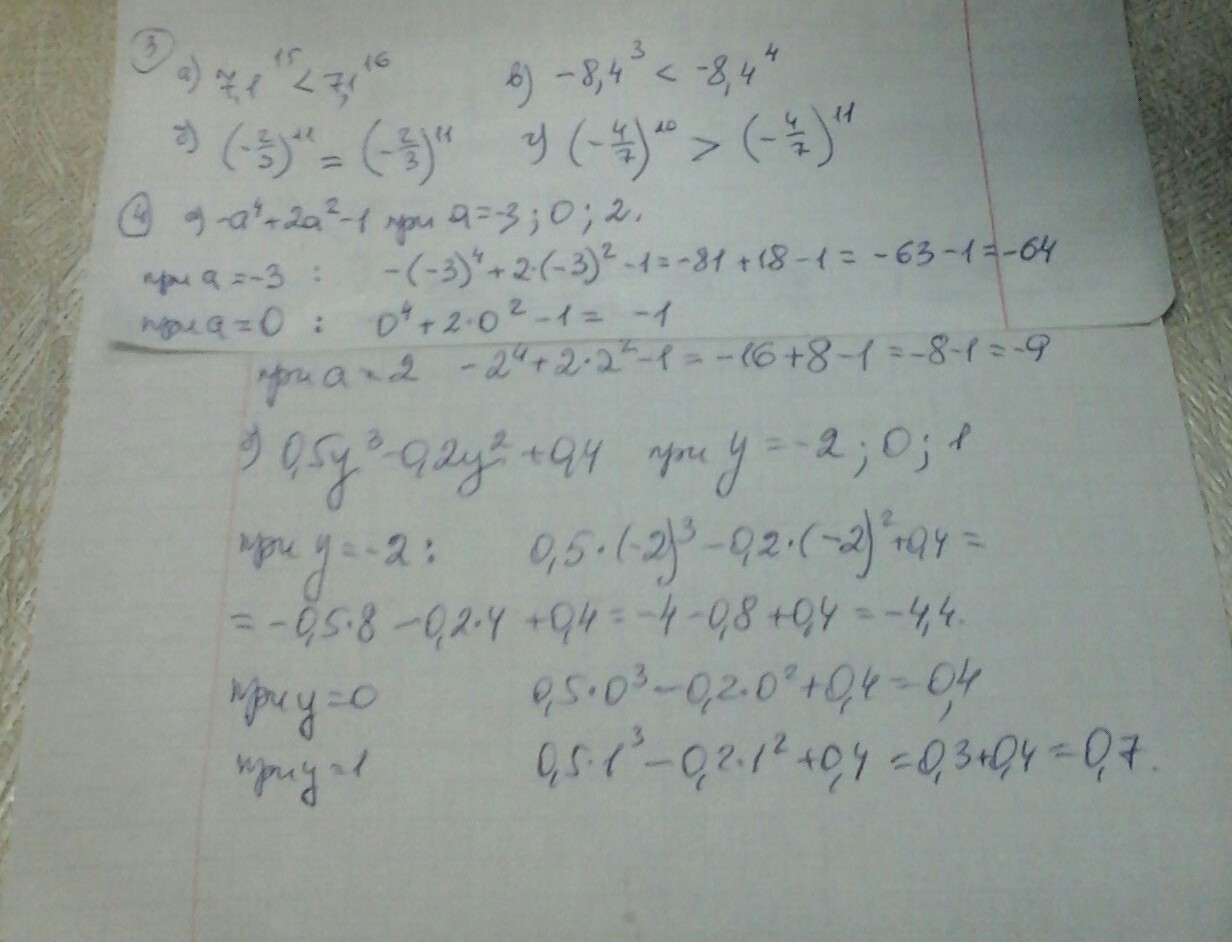 ③ а) 7,1¹⁵ < 7,1¹⁶ в) -8,4³ < -8,4⁴
б) (-2/3)¹¹ = (-2/3)¹¹ г) (-4/7)¹⁰ > (-4/7)¹¹
④ -a⁴+2a²-1 при a=-3; 0; 2.
при a=-3 : -(-3)⁴+2·(-3)²-1=-81+18-1=-63-1=-64
при a=0 : 0⁴+2·0²-1= -1
при a=2 -2⁴+2·2²-1=-16+8-1=-8-1=-9
0,5y³-0,2y²+0,4 при y=-2; 0; 1
при y=-2: 0,5·(-2)³-0,2·(-2)²+0,4=
=-0,5·8-0,2·4+0,4=-4-0,8+0,4=-4,4.
при y=0 0,5·0³-0,2·0²+0,4=0,4
при y=1 0,5·1³-0,2·1²+0,4=0,3+0,4=0,7.